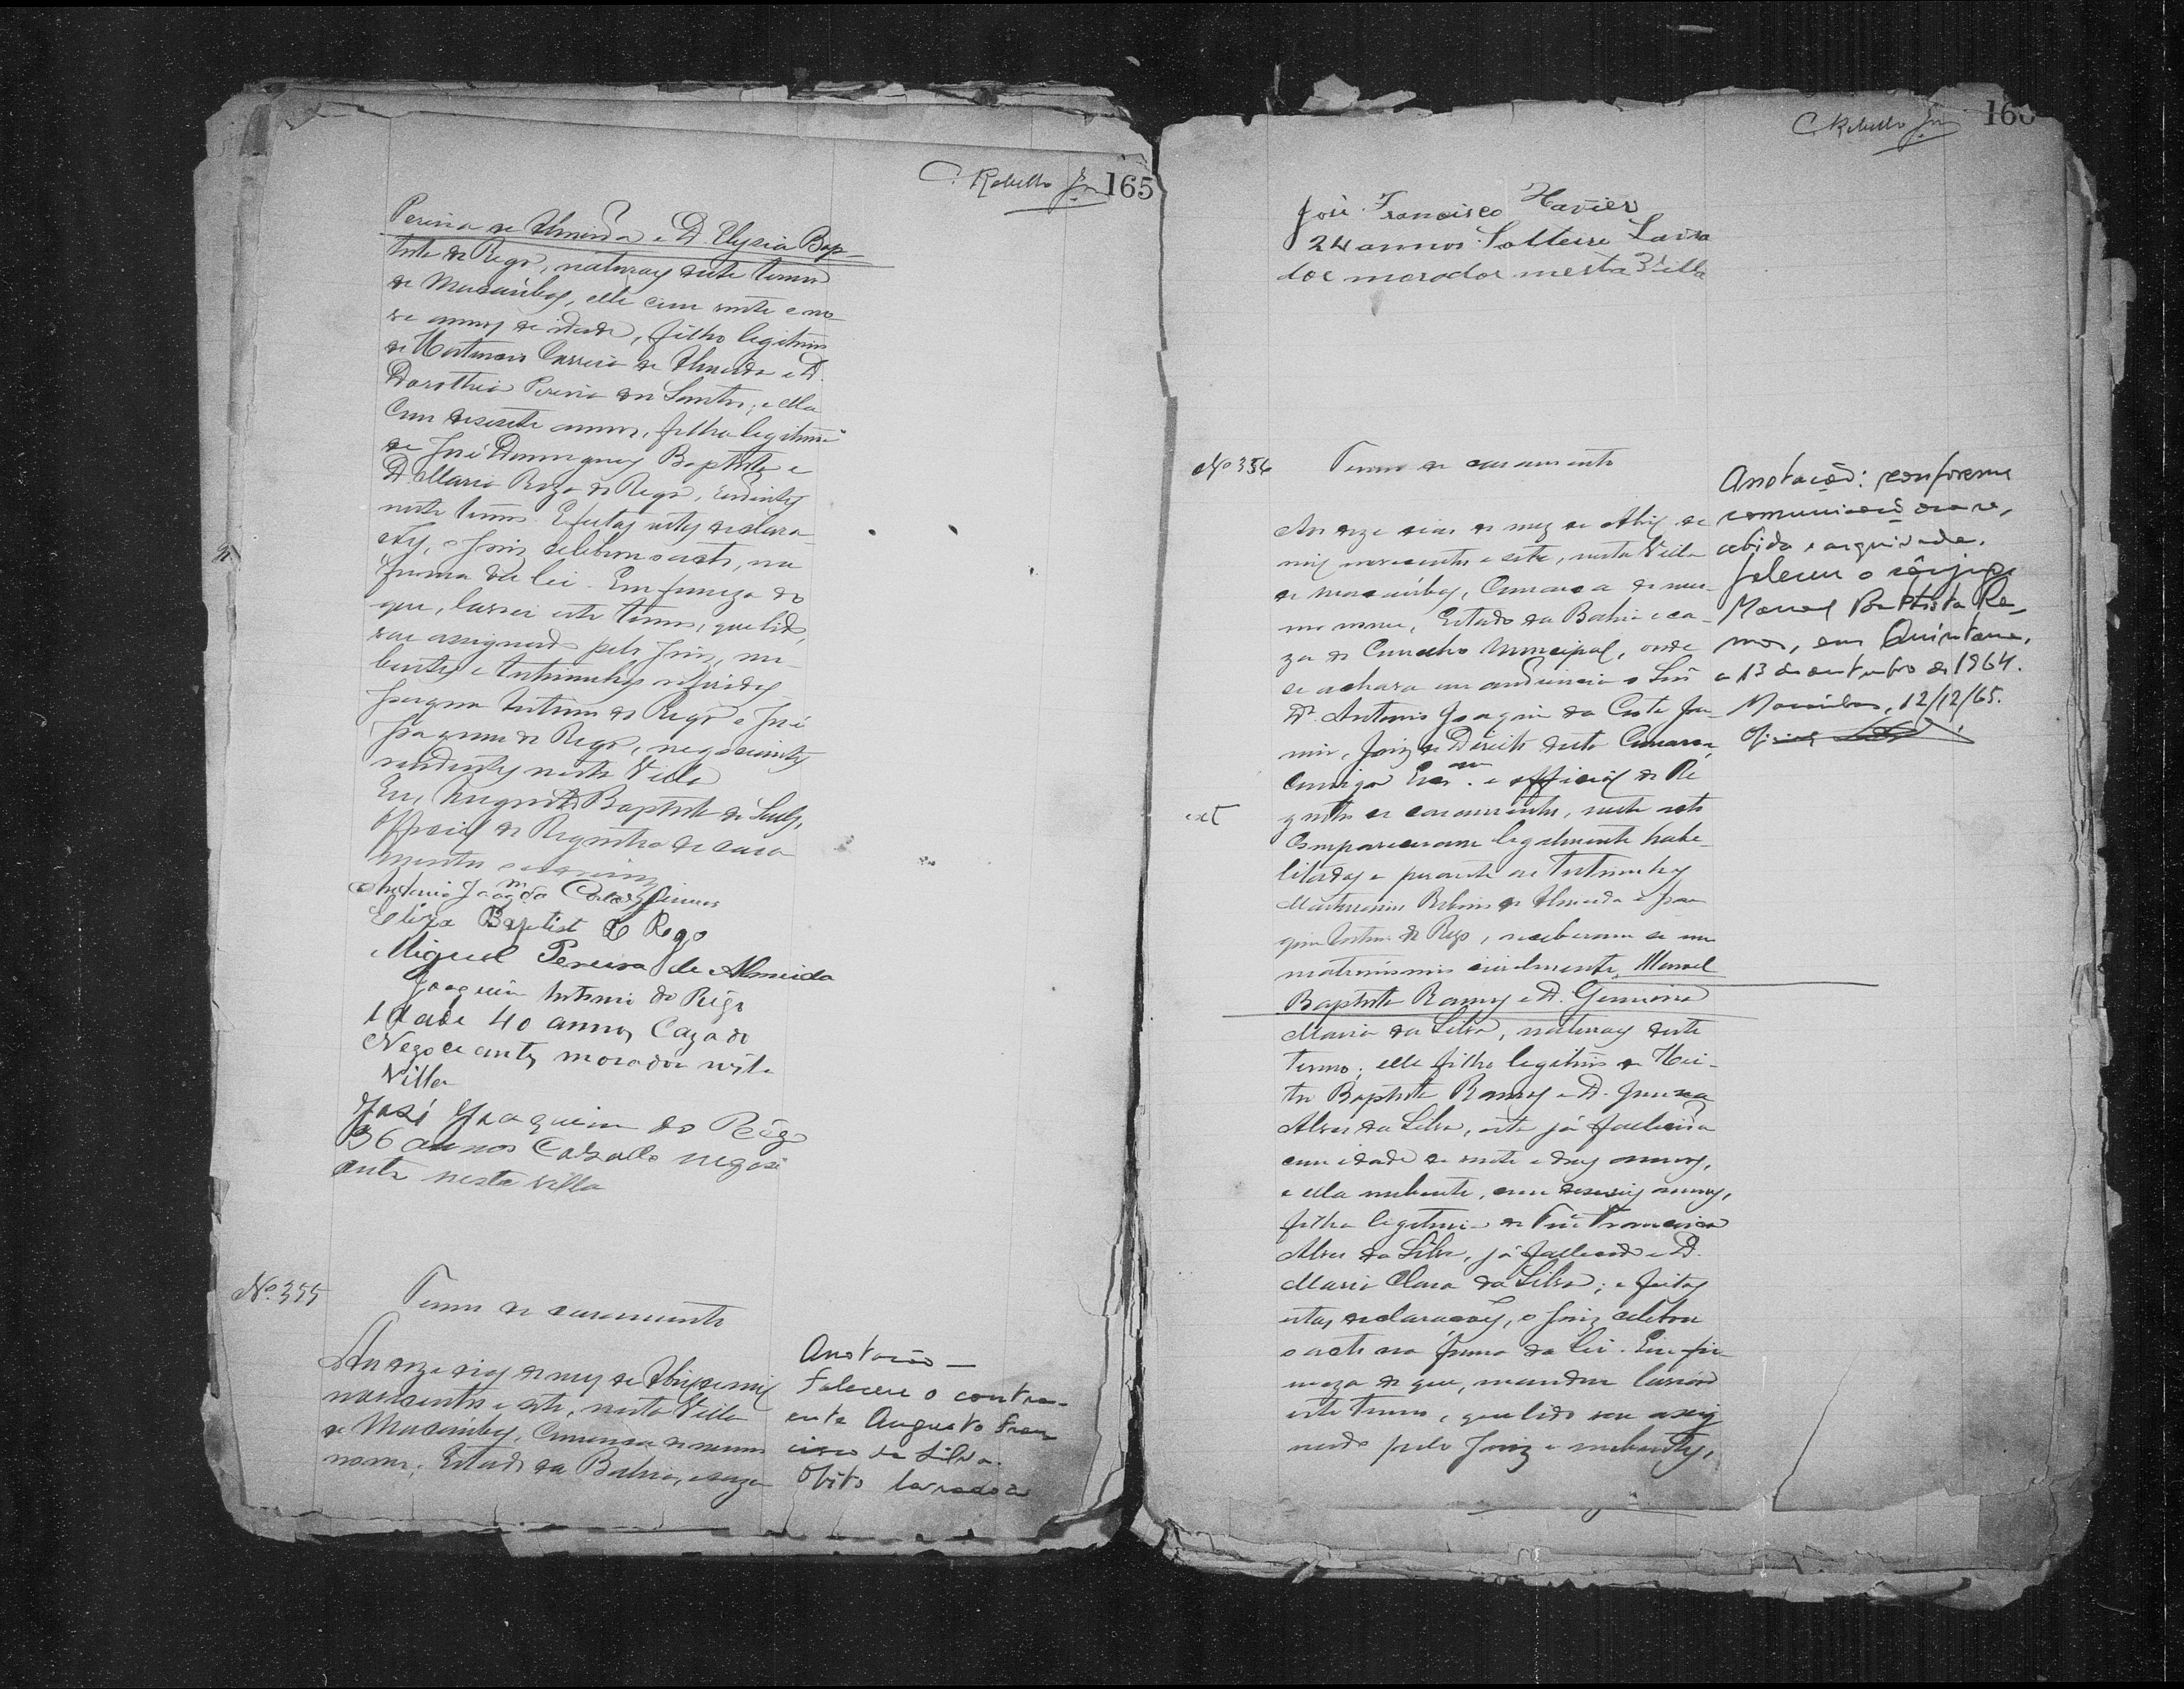 C. Rebello Jn 165
Pereira de Almeida e D. Elysia Bap-
tista do Rego, naturaes deste termo
de Macaúbas, elle com vinte e no-
ve annos de idade, filho legitimo
de Martiniano Correia de Almeida e D.
Dorothea Pereira dos Santos; e ella
com desesete annos, filha legitima
de José Domingues Baptista e
D. Maria Roza do Rego, residentes
neste termo. E feitas estas declara-
ções, o Juiz celebrou o acto, na
forma da lei. Em firmeza do
que, lavrei este termo, que lido,
vae assignado pelo Juiz, nu-
bentes e testimunhas referidas
Joaquim Antonio do Rego e José
Joaquim do Rego, negociantes
residentes nesta Villa
Eu, Augusto Baptista de
Official do Registro de casa-
mentos
Antonio Joaqm da Costa
Eliza Baptist do Rego
Miguel Pereira de Almeida
Joaquim Antonio do Rêgo
Idade 40 annos Cazado
Negociante, morador nesta
Villa
José Joaquim do Rêgo
36 annos Cazado negosi
ante nesta villa
No. 355 Termo de casamento
Aos onze dias do mez de Abril de mil
novecentos e sete, nesta Villa
de Macaúbas, Comarca do mesmo
nome, Estado da Bahia, e caza
Anotação —
Faleceu o contra-
ente Augusto Fran
cisco da Silva.
Obito lavrado a
C. Rebello Jn 166
José Francisco Xavier
24 annos Solteiro Lavra
dor morador nesta Villa
No 356 Termo de casamento
Aos onze dias do mez de Abril de
mil novecentos e sete, nesta Villa
de Macaúbas, Comarca do mes-
mo nome, Estado da Bahia e ca-
za do Conselho Municipal, onde
se achava em audiencia o
Dr. Antonio Joaquim da Costa
Juiz de Direito desta Comarca,
commigo Escam. e official do Re
gistro de casamentos, neste acto
compareceram legalmente habe-
litados e perante as testimunhas
de Almeida e Joa-
quim Antonio do Rego, receberam-se em
matrimonio civilmente, Manoel
Baptista Ramos e D.
Maria da Silva, naturaes deste
termo; elle filho legitimo de Hei-
tor Baptista Ramos e D.
Alves da Silva, esta já fallecida
com idade de vinte e dous annos,
e ella nubente, com deseseis annos,
filha legitima de José Francisco
Alves da Silva, já fallecido e D.
Maria Clara da Silva; e feitas
estas declarações, o Juiz celebrou
o acto na forma da lei. Em fir-
meza do que, mandou lavrar
este termo, que lido vae assig
nado pelo Juiz e nubentes,
Anotação: conforme
comunicação ora re-
cebida e arquivada,
faleceu o cônjuge
Manoel Baptista Ra-
mos, em Quintana,
a 13 de outubro de 1964.
Macaúbas, 12/12/65.
Oficial